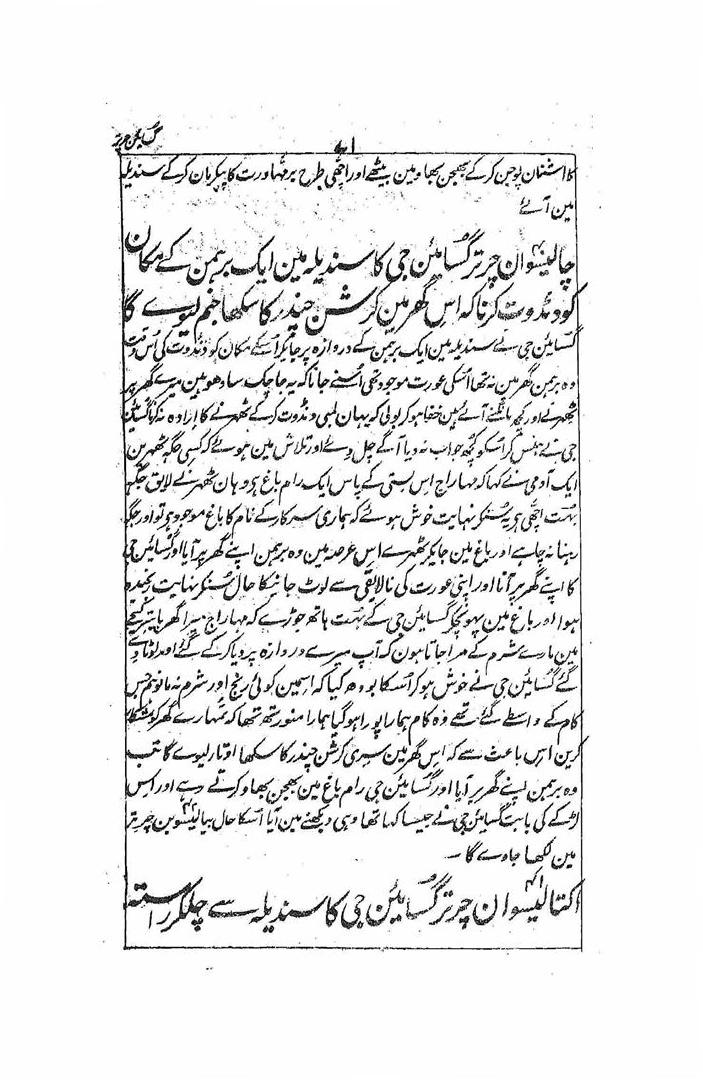 گسائین چرتر
۷۱
کا اشنان پوجن کر کے بھجن بھاو مین بیٹھے اور اچھی طرح برمہاورت کا پرکرمان کر کے سندیلہ
مین آئے
چالیسوان چرتر گسائین جی کا سندیلہ مین ایک برہمن کے مکان
کو دنڈوت کرنا کہ اس گھر مین کرشن چندر کا سکھا جنم لیوے گا
گسائین جی نے سندیلہ مین ایک برہمن کے دروازہ پر جا کر اسکے مکان کو دنڈوت کی اُس وقت
وہ برہمن گھر مین نہ تھا اسکی عورت موجود تھی اُسنے جانا کہ یہ جاچک سادھو ہین میرے گھر پر
ٹھہرنے اور کچھ مانگنے آئے ہین خفا ہو کر بولی کہ یہان لمبی دنڈوت کر کے ٹھہرنے کا ارادہ نہ کرنا گسائین
جی نے ہنس کر اسکو کچھ جواب نہ دیا آگے چل دئے اور تلاش مین ہوئے کہ کسی جگہ ٹھہرین
ایک آدمی نے کہا کہ مہاراج اس بستی کے پاس ایک رام باغ ہی وہان ٹھہرنے لایق جگہ
بہت اچھی ہی یہ سُنکر نہایت خوش ہوئے کہ ہماری سرکار کے نام کا باغ موجود ہی تو اور جگہ
رہنا نہ چاہے اور باغ مین جا کر ٹھہرے اس عرصہ مین وہ برہمن اپنے گھر پر آیا اور گسائین جی
کا اپنے گھر پر آنا اور اپنی عورت کی نالایقی سے لوٹ جانیکا حال سُنکر نہایت رنجیدہ
ہوا اور باغ مین پہونچکر گسائین جی کے بہت ہاتھ جوڑے کہ مہاراج میرا گھر پاپتر کیجے
مین مارے شرم کے مرا جاتا ہون کہ آپ میرے دروازہ پر دیا کر کے گئے اور لوٹا دے
گئے گسائین جی نے خوش ہو کر اُسکا بودھ کیا کہ اسمین کوئی رنج اور شرم نہ مانو ہم جس
کام کے واسطے گئے تھے وہ کام ہمارا پورا ہو گیا ہمارا منورتھ تھا کہ تمہارے گھر کو نمشکار
کرین اس باعث سے کہ اس گھر مین سری کرشن چندر کا سکھا اوتار لیوے گا تب
وہ برہمن اپنے گھر پر آیا اور گسائین جی رام باغ مین بھجن بھاو کرتے رہے اور اس
لڑکے کی بابت گسائین جی نے جیسا کہا تھا وہی دیکھنے مین آیا اُسکا حال بیالیسوین چرتر
مین لکھا جاوے گا ۔
اکتالیسوان چرتر گسائین جی کا سندیلہ سے چلکر راستہ